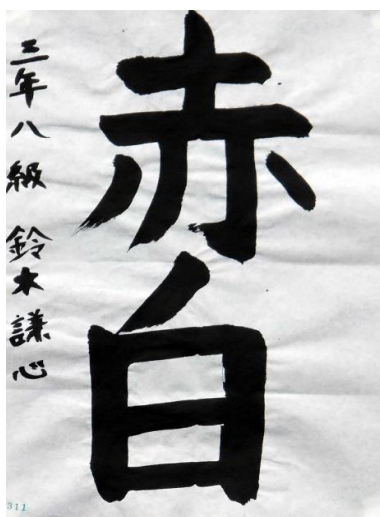 赤白
三年八級 鈴木謙心
311